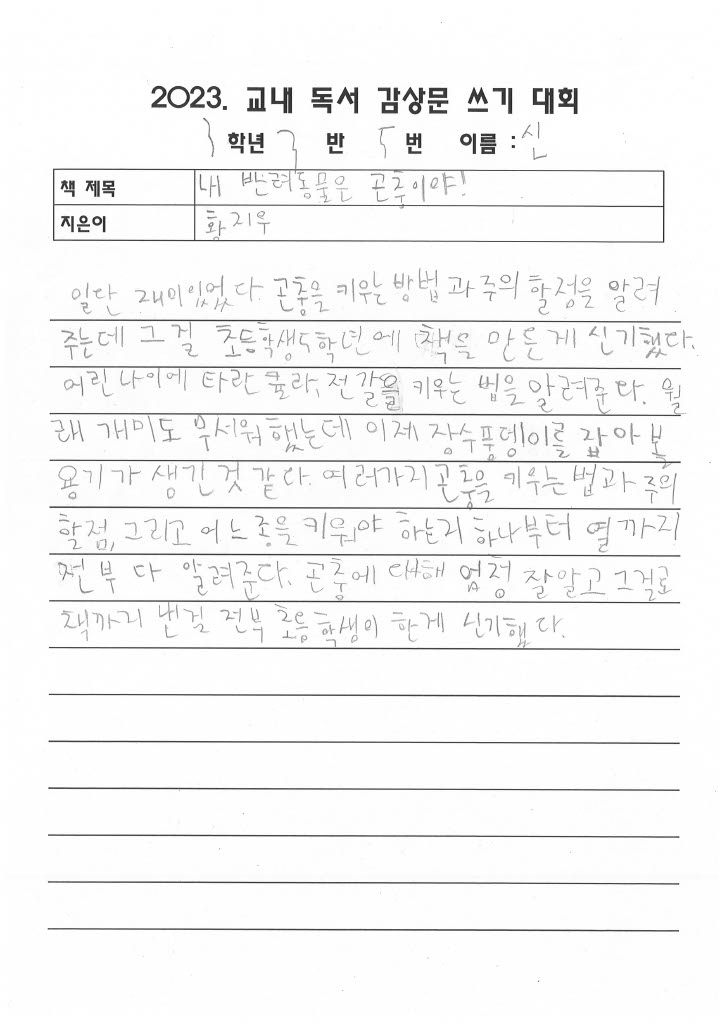 2023. 교내 독서 감상문 쓰기 대회
3 학년 3 반 5 번 이름 : 신
책 제목 내 반려동물은 곤충이야!
지은이 황지우
일단 재미있었다. 곤충을 키우는 방법과 주의 할정을 알려
주는데 그걸 초등학생 5학년에 책을 만든게 신기했다.
어린 나이에 타란튤라, 전갈을 키우는 법을 알려준다. 원
래 개미도 무서워했는데 이제 장수풍뎅이를 잡아 볼
용기가 생긴것 같다. 여러가지 곤충을 키우는 법과 주의
할점, 그리고 어느 종을 키워야 하는지 하나부터 열까지
전부 다 알려준다. 곤충에 대해 엄청 잘알고 그걸로
책까지 낸걸 전부 초등학생이 한게 신기했다.